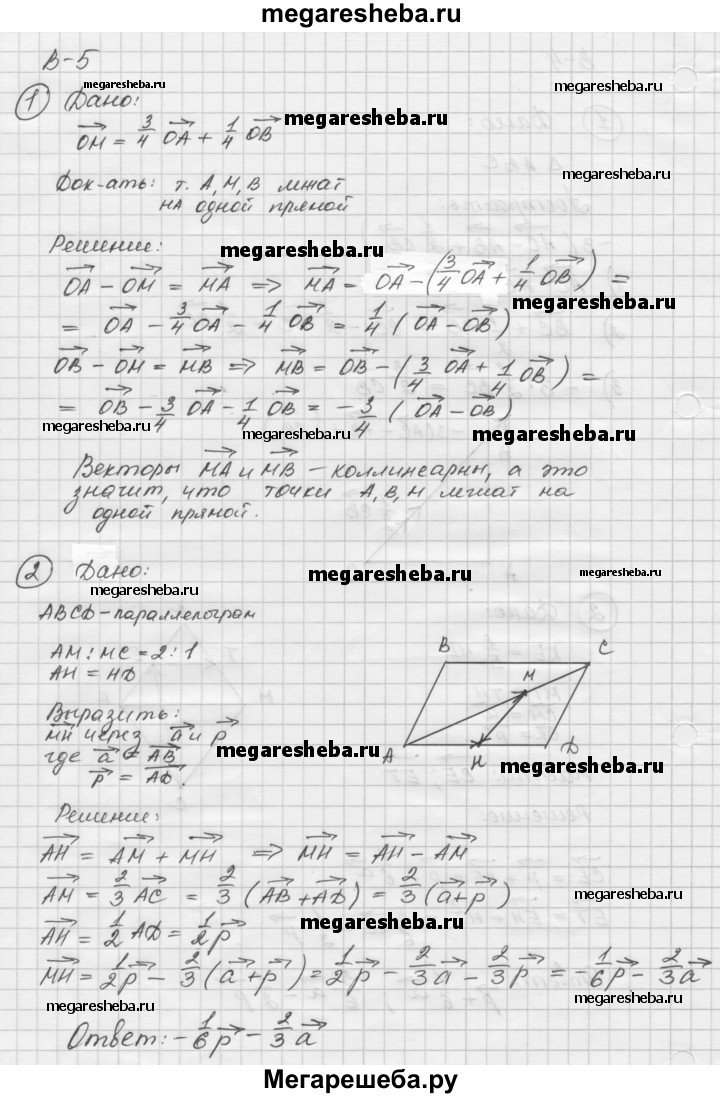 megaresheba.ru
В-5
megaresheba.ru
① Дано:
OM = 3/4 OA + 1/4 OB
megaresheba.ru
megaresheba.ru
Док-ать: т. А, М, В лежат
на одной прямой
megaresheba.ru
Решение:
megaresheba.ru
OA - OM = MA => MA = OA - (3/4 OA + 1/4 OB) =
megaresheba.ru
= OA - 3/4 OA - 1/4 OB = 1/4 (OA - OB)
OB - OM = MB => MB = OB - (3/4 OA + 1/4 OB) =
= OB - 3/4 OA - 1/4 OB = - 3/4 (OA - OB)
megaresheba.ru
megaresheba.ru
megaresheba.ru
Векторы MA и MB - коллинеарны, а это
значит, что точки А, В, М лежат на
одной прямой.
② Дано:
megaresheba.ru
megaresheba.ru
megaresheba.ru
ABCD - параллелограм
AM : MC = 2 : 1
AH = HD
B
C
M
A
H
D
Выразить:
MH через a и p
где a = AB
p = AD.
megaresheba.ru
megaresheba.ru
Решение:
AH = AM + MH => MH = AH - AM
AM = 2/3 AC = 2/3 (AB + AD) = 2/3 (a + p)
megaresheba.ru
megaresheba.ru
AH = 1/2 AD = 1/2 p
MH = 1/2 p - 2/3 (a + p) = 1/2 p - 2/3 a - 2/3 p = - 1/6 p - 2/3 a
megaresheba.ru
megaresheba.ru
Ответ: - 1/6 p - 2/3 a
Мегарешеба.ру